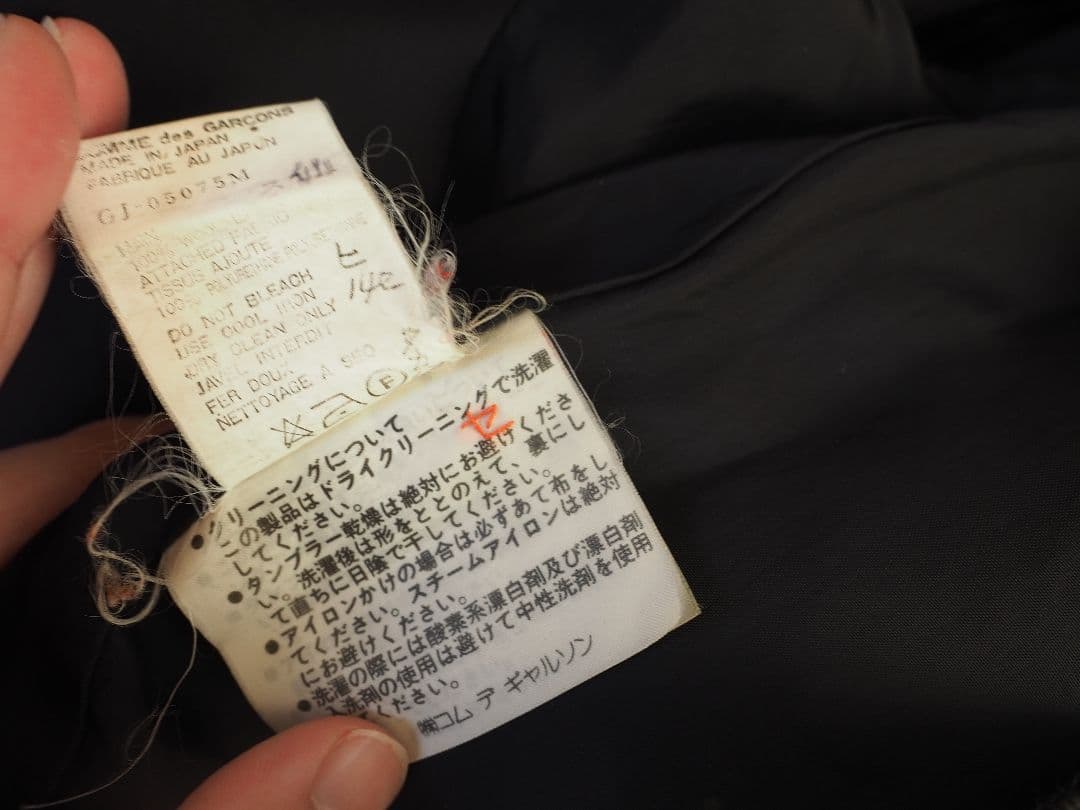 COMME des GARÇONS
MADE IN JAPAN
FABRIQUE AU JAPON
GJ-05075M
ATTACHED
TISSUS AJOUTE
100% POLYURETHANE
DO NOT BLEACH
ヒ
USE COOL IRON
142
DRY CLEAN ONLY
JAVEL INTERDIT
FER DOUX
NETTOYAGE A SEC
F
セ
クリーニングについて
●この製品はドライクリーニングで洗濯
してください。
●タンブラー乾燥は絶対にお避けくださ
い。洗濯後は形をととのえて、裏にし
て直ちに日陰で干してください。
●アイロンかけの場合は必ずあて布をし
てください。スチームアイロンは絶対
にお避けください。
●洗濯の際には酸素系漂白剤及び漂白剤
入洗剤の使用は避けて中性洗剤を使用
ください。
㈱コム デ ギャルソン